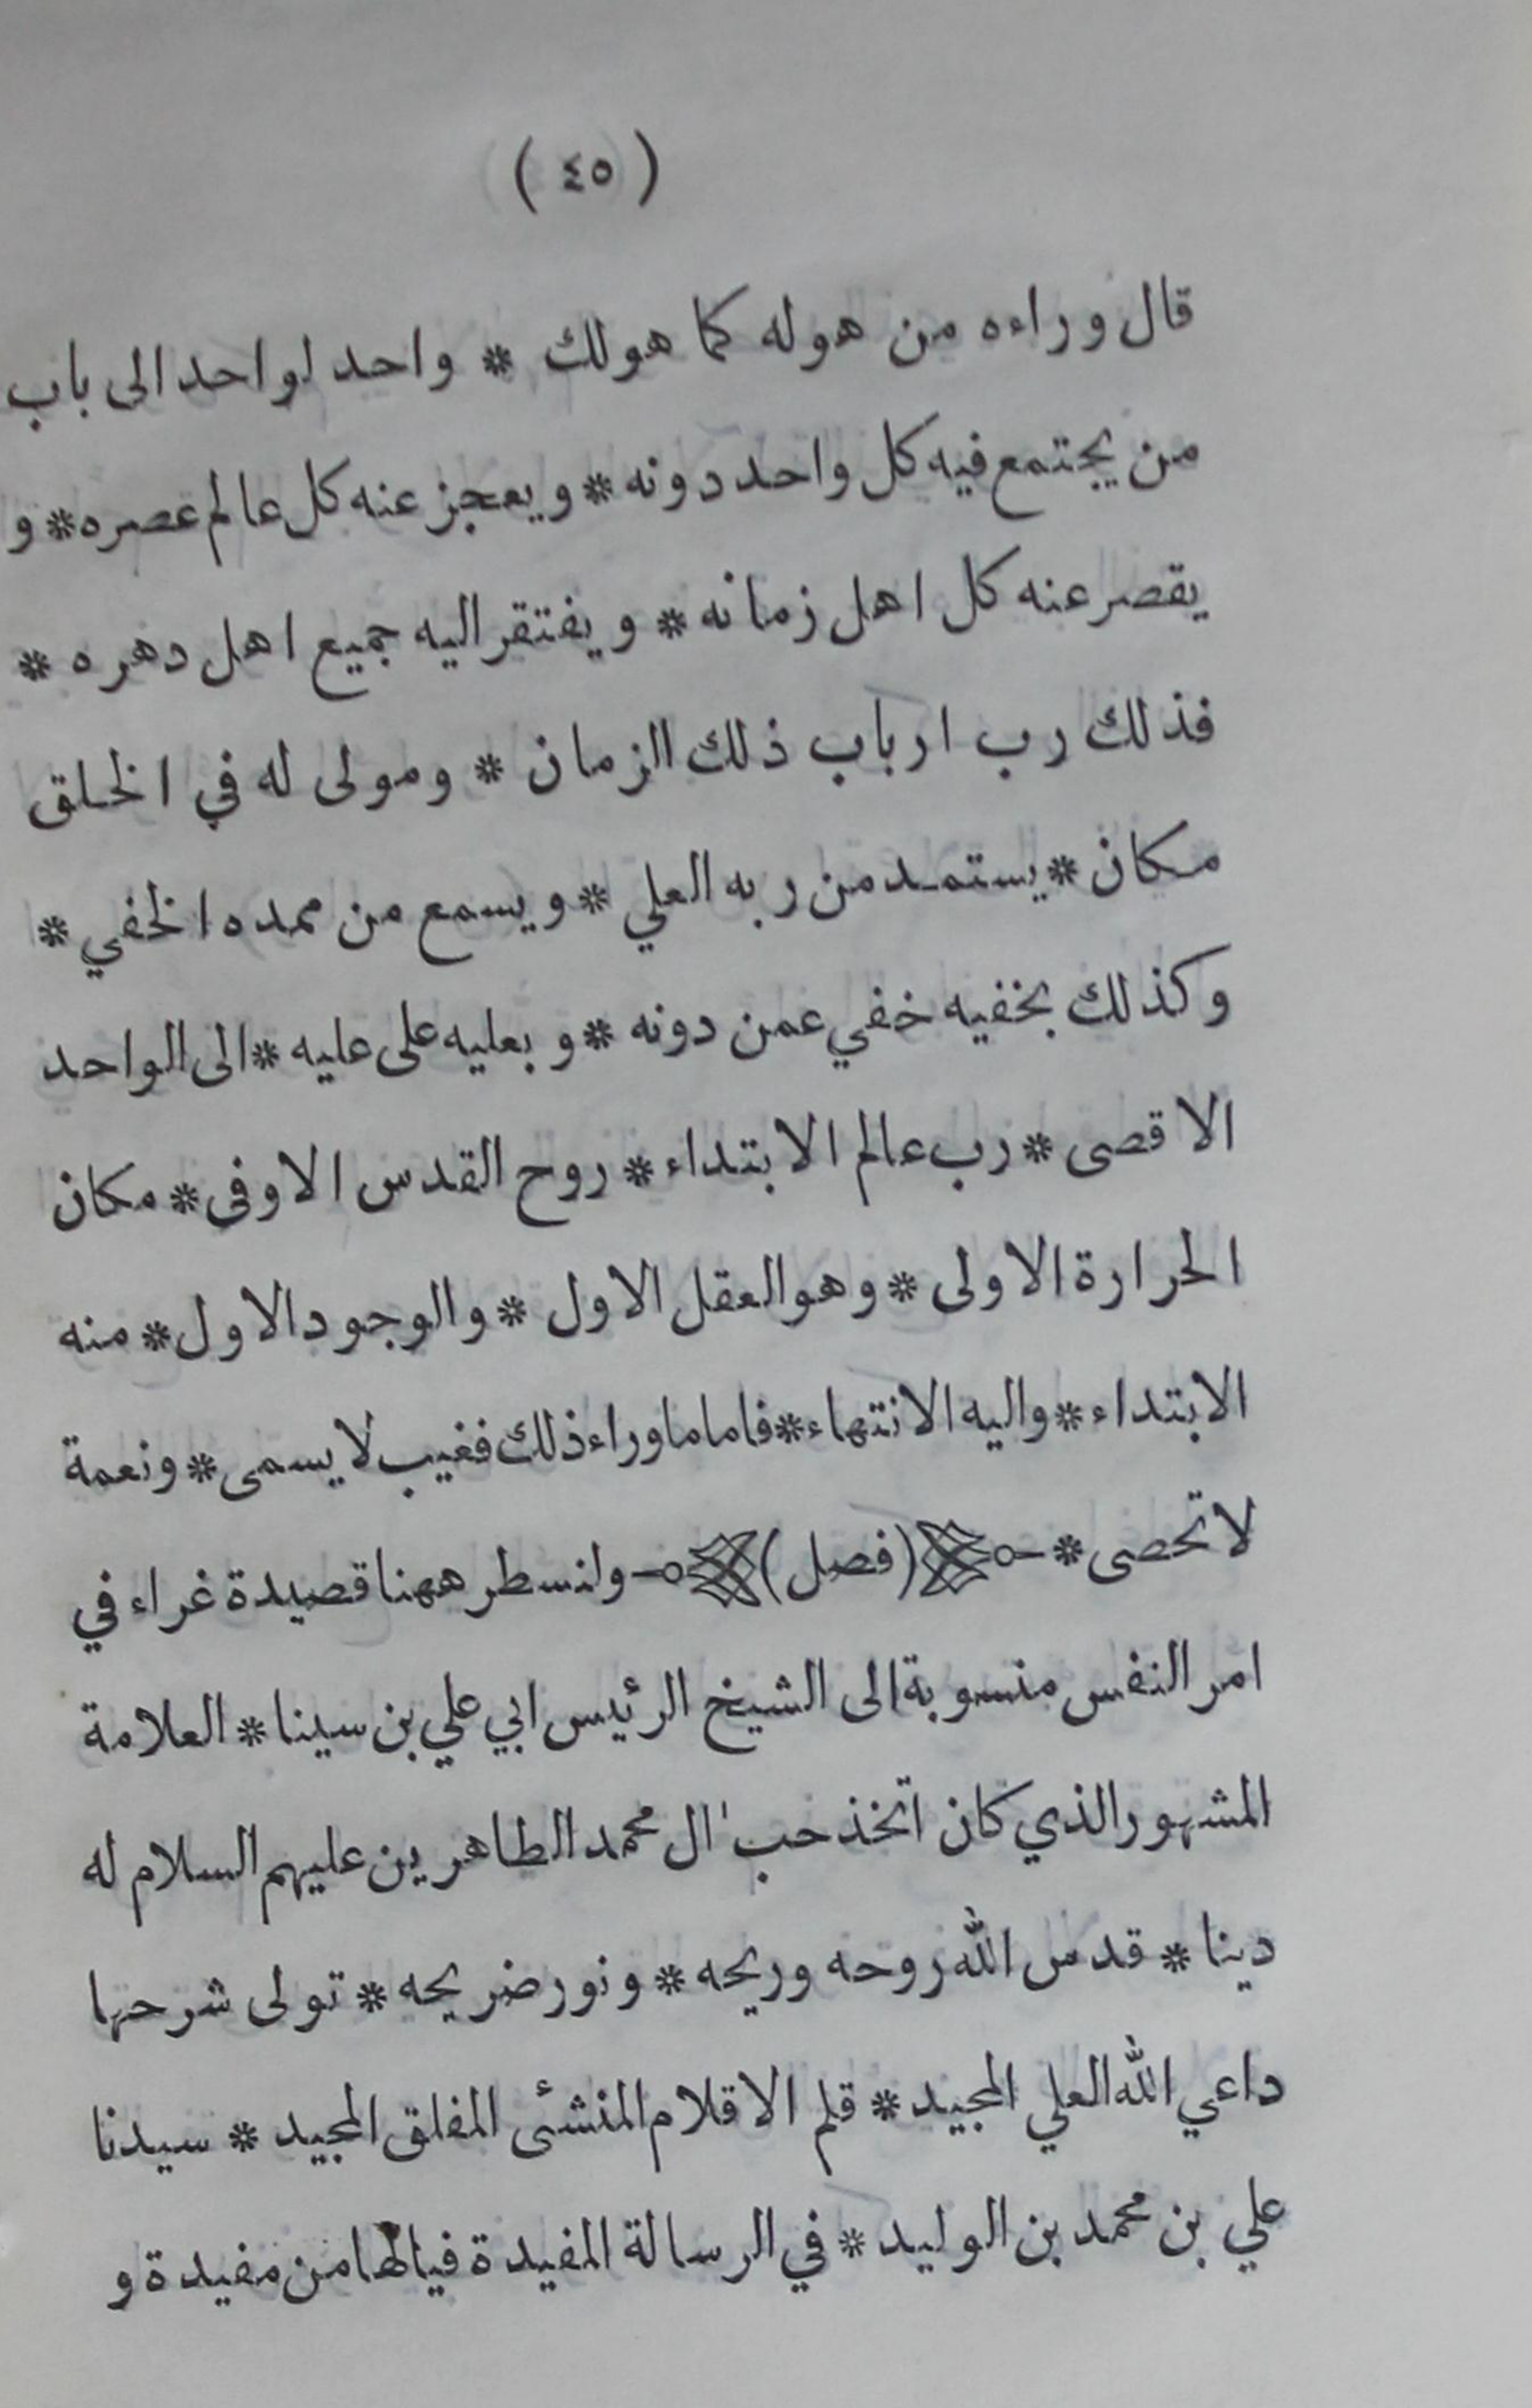 ( ٤٥ )
قال وراءه من هو له كما هو لك * واحد لواحد الى باب
من يجتمع فيه كل واحد دونه * ويعجز عنه كل عالم عصره * و
يقصر عنه كل اهل زمانه * ويفتقر اليه جميع اهل دهره *
فذلك رب ارباب ذلك الزمان * ومولى له في الخلق
مكان * يستمد من ربه العلي * ويسمع من ممده الخفي *
وكذلك بخفيه خفي عمن دونه * وبعليه على عليه * الى الواحد
الاقصى * رب عالم الابتداء * روح القدس الاوفى * مكان
الحرارة الاولى * وهو العقل الاول * والوجود الاول * منه
الابتداء * واليه الانتهاء * فاما ما وراء ذلك فغيب لا يسمى * ونعمة
لا تحصى * (فصل) ولنسطر ههنا قصيدة غراء في
امر النفس منسوبة الى الشيخ الرئيس ابي علي بن سينا * العلامة
المشهور الذي كان اتخذ حب اٰل محمد الطاهرين عليهم السلام له
دينا * قدس الله روحه وريحه * ونور ضريحه * تولى شرحها
داعي الله العلي المجيد * قلم الاقلام المنشئ المفلق المجيد * سيدنا
علي بن محمد بن الوليد * في الرسالة المفيدة فيالها من مفيدة و